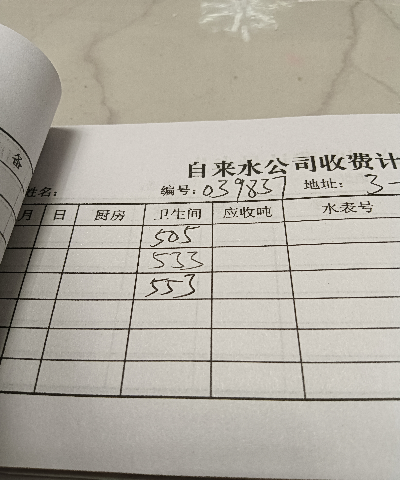 自来水公司收费计
姓名: 编号: 039837 地址: 3-
月 日 厨房 卫生间 应收吨 水表号
505
533
553